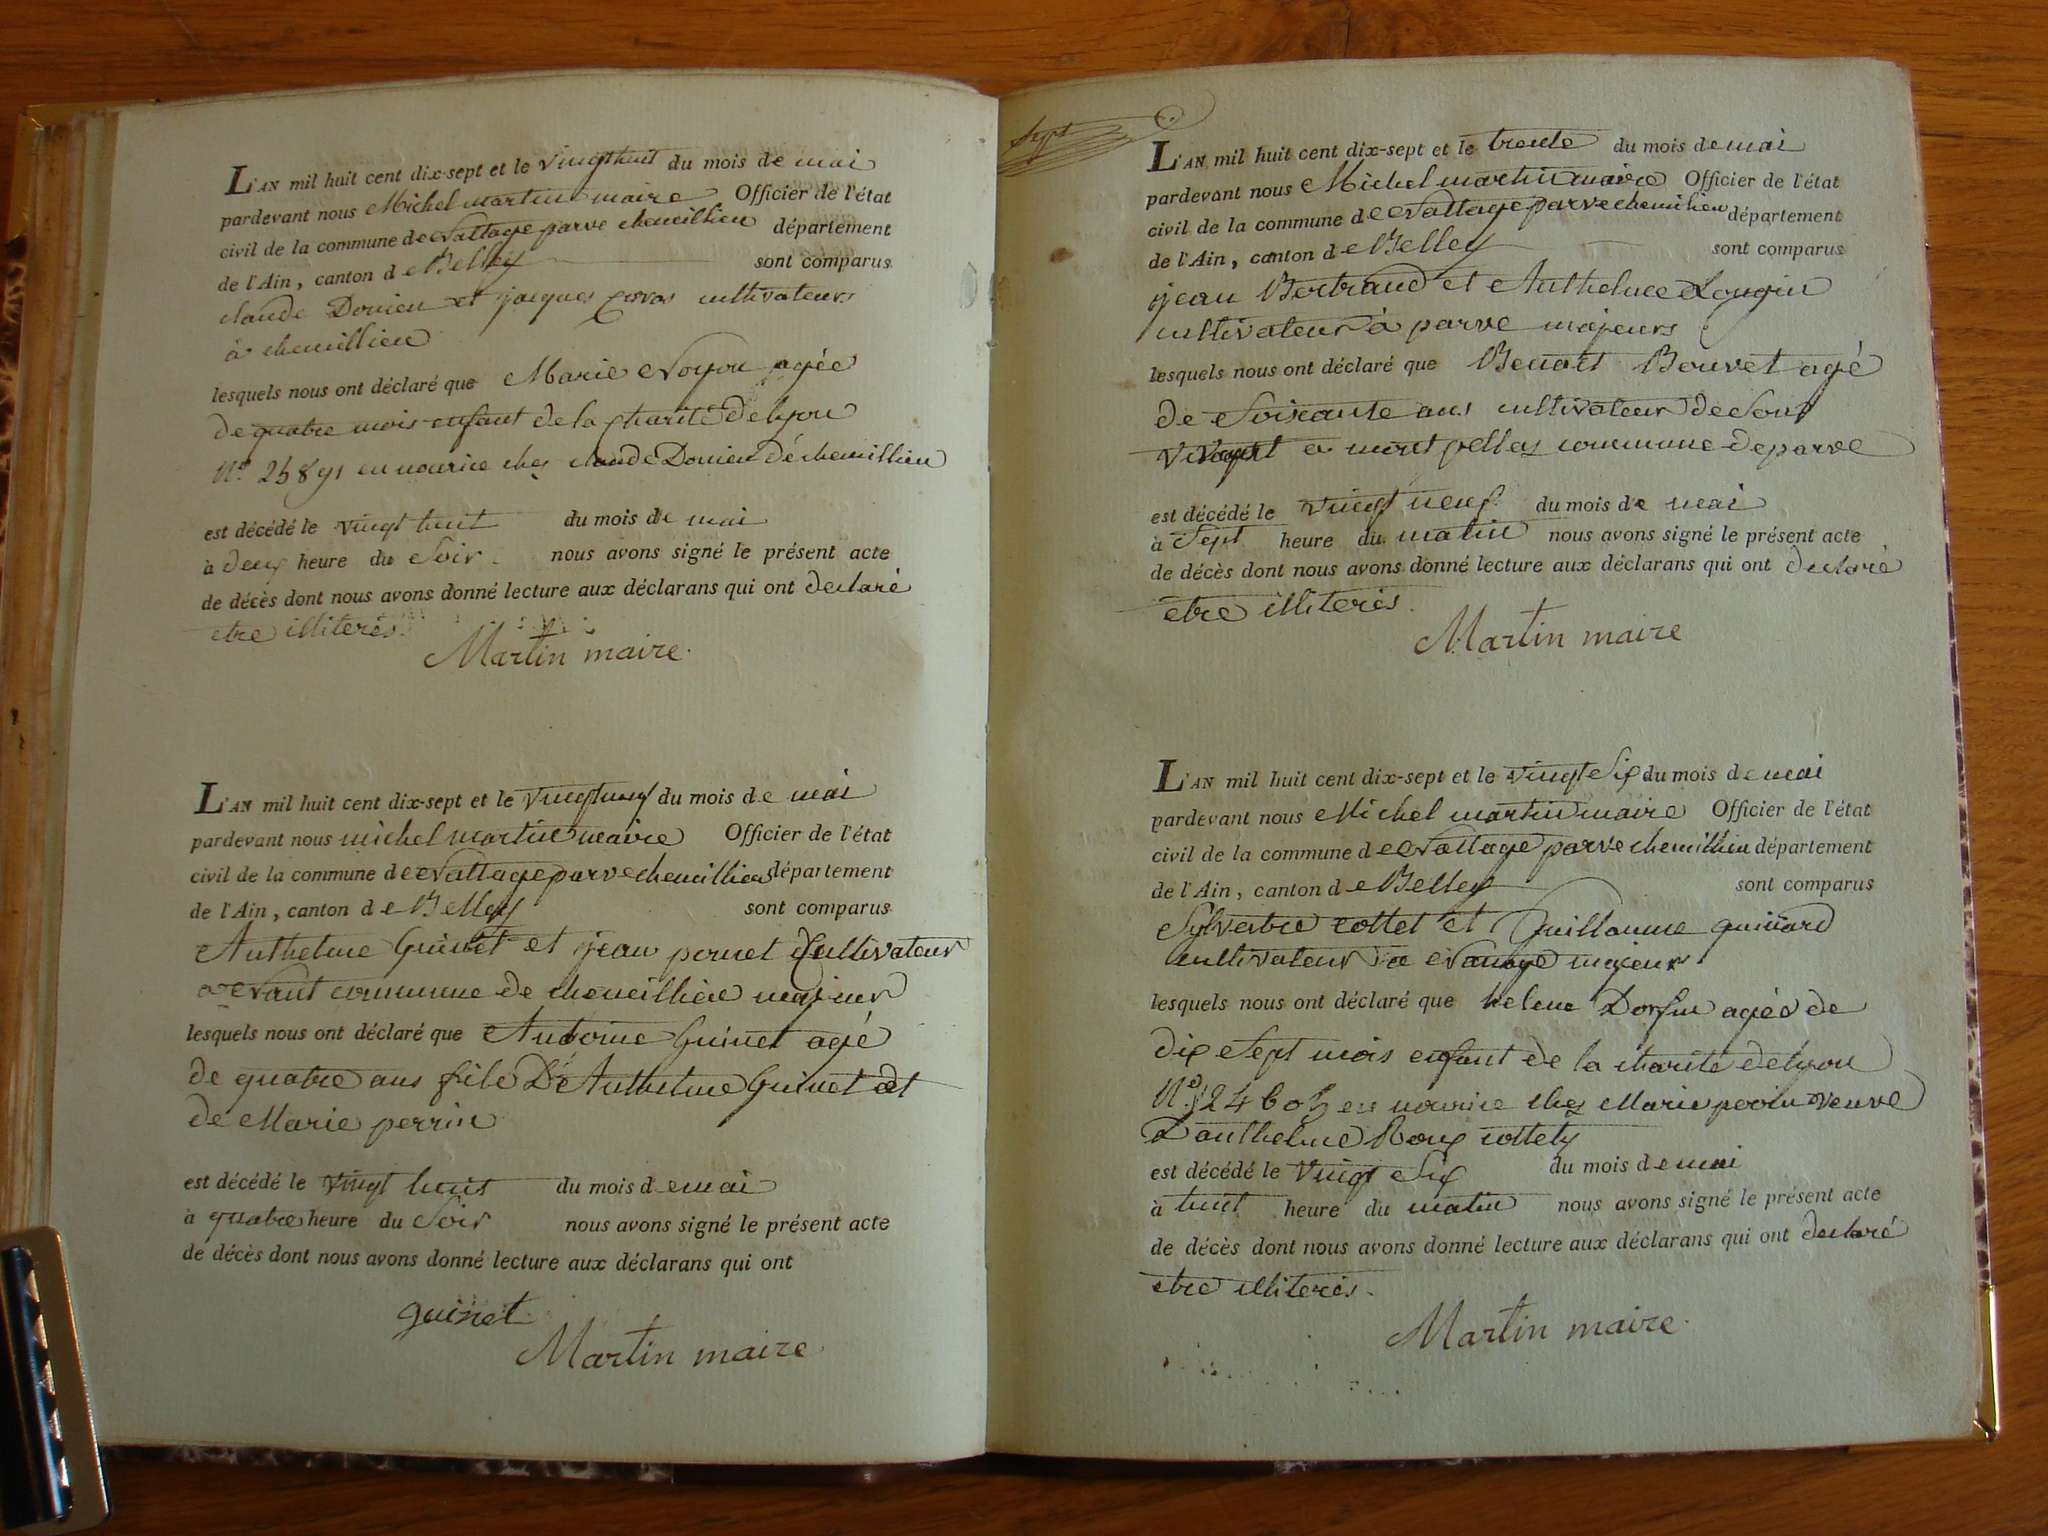 L'AN mil huit cent dix-sept et le vingt huit du mois de mai
pardevant nous Michel martin maire Officier de l'état
civil de la commune de Nattage parve chemillieu département
de l'Ain, canton de Belley sont comparus
claude Donien et jacques cultivateurs
à chemillieu
lesquels nous ont déclaré que Marie Noyon agée
de quatre mois enfant de la charité de lyon
N.° en nourice chez claude Donien de chemillieu
est décédé le vingt huit du mois de mai
à deux heure du Soir. nous avons signé le présent acte
de décès dont nous avons donné lecture aux déclarans qui ont declaré
etre illiterés.
Martin maire.
L'AN mil huit cent dix-sept et le vingt neuf du mois de mai
pardevant nous michel martin maire Officier de l'état
civil de la commune de Nattage parve chemillieu département
de l'Ain, canton de Belley sont comparus
Anthelme Guinet et jean pernet Cultivateur
a commune de chemeillieu majeur
lesquels nous ont déclaré que Antoine Guinet agé
de quatre ans fils D'Anthelme Guinet et
de Marie perrin
est décédé le vingt huit du mois de mai
à quatre heure du Soir nous avons signé le présent acte
de décès dont nous avons donné lecture aux déclarans qui ont
guinet
Martin maire
Sept
L'AN mil huit cent dix-sept et le trente du mois de mai
pardevant nous Michel martin maire Officier de l'état
civil de la commune de Nattage parve chemilieu département
de l'Ain, canton de Belley sont comparus
jean Bertrand et Anthelme Longin
cultivateur à parve majeurs
lesquels nous ont déclaré que Benoit Bouvet agé
de Soixante ans cultivateur de Sont
vivant a montpellas commune de parve
est décédé le vingt neuf du mois de mai
à Sept heure du matin nous avons signé le présent acte
de décès dont nous avons donné lecture aux déclarans qui ont declaré
etre illiterés.
Martin maire
L'AN mil huit cent dix-sept et le vingt Six du mois de mai
pardevant nous Michel martin maire Officier de l'état
civil de la commune de Nattage parve chemillieu département
de l'Ain, canton de Belley sont comparus
Sylvestre cottet et Guillaume guinard
cultivateur a majeur
lesquels nous ont déclaré que helene Dorfin agée de
dix Sept mois enfant de la charité de lyon
N.° en nourice chez Marie perin veuve
D'anthelme Roux
est décédé le vingt Six du mois de mai
à huit heure du matin nous avons signé le présent acte
de décès dont nous avons donné lecture aux déclarans qui ont declaré
etre illiterés.
Martin maire.